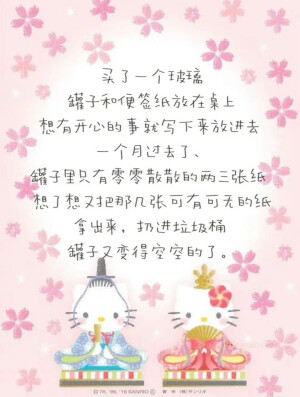 买了一个玻璃
罐子和便签纸放在桌上
想有开心的事就写下来放进去
一个月过去了、
罐子里只有零零散散的两三张纸
想了想又把那几张可有可无的纸
拿出来，扔进垃圾桶
罐子又变得空空的了。